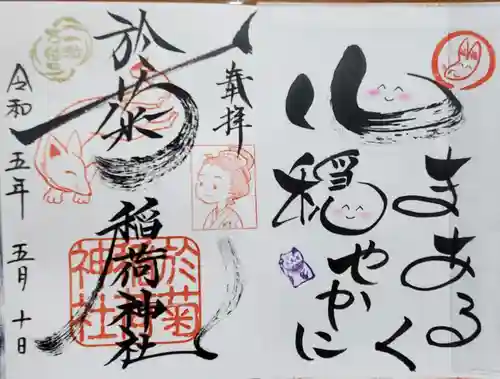 まあるく
心穏やかに
奉拝
於菊稲荷神社
於菊
稲荷
神社
令和五年五月十日